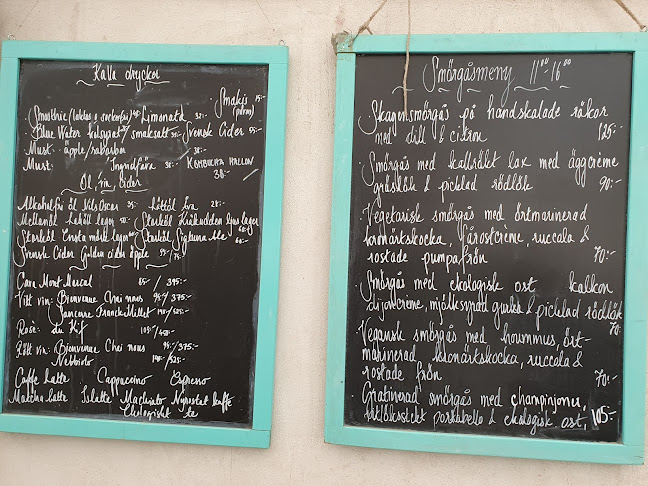 Kalla drycker
Smakis 15:-
(päron)
Smoothie (laktos & sockerfri) Limonad
Blue Water kolsyrat smaksatt Svensk Cider 55:-
Must äpple/rabarber 38:-
Must Ingefära 38:- KOMBUCHA HALLON
38:-
Öl, vin, cider
Alkoholfri öl Nils Oscar 35:- lättöl 28:-
Mellanöl lager 50:- Starköl ljus lager
60:-
Starköl mörk lager Starköl Sigtuna Ale 60:-
Svensk Cider Golden cider äpple
Cava Mont Marcal 85/ 395:-
Vitt vin: Bienvenue Chai nous 95/375:-
Sancerre Franck Millet
Rosé:
Rött vin: Bienvenue Chai nous 95/375:-
Nebbiolo
Caffe Latte Cappuccino Espresso
Matcha latte Islatte Machiato Nyrostat kaffe
Ekologiskt te
Smörgåsmeny 11⁰⁰-16⁰⁰
Skagensmörgås på handskalade räkor
med dill & citron 125:-
Smörgås med kallrökt lax med äggcrème
gräslök & picklad rödlök 90:-
Vegetarisk smörgås med örtmarinerad
kronärtskocka, fårostcrème, ruccala &
rostade pumpafrön 70:-
Smörgås med ekologisk ost kalkon
dijoncreme, mjölksyrad gurka & picklad rödlök
70:-
Vegansk smörgås med hoummus, ört-
marinerad kronärtskocka, ruccala &
rostade frön 70:-
Gratinerad smörgås med champinjoner,
vitlöksstekt portabello & ekologisk ost, 105:-